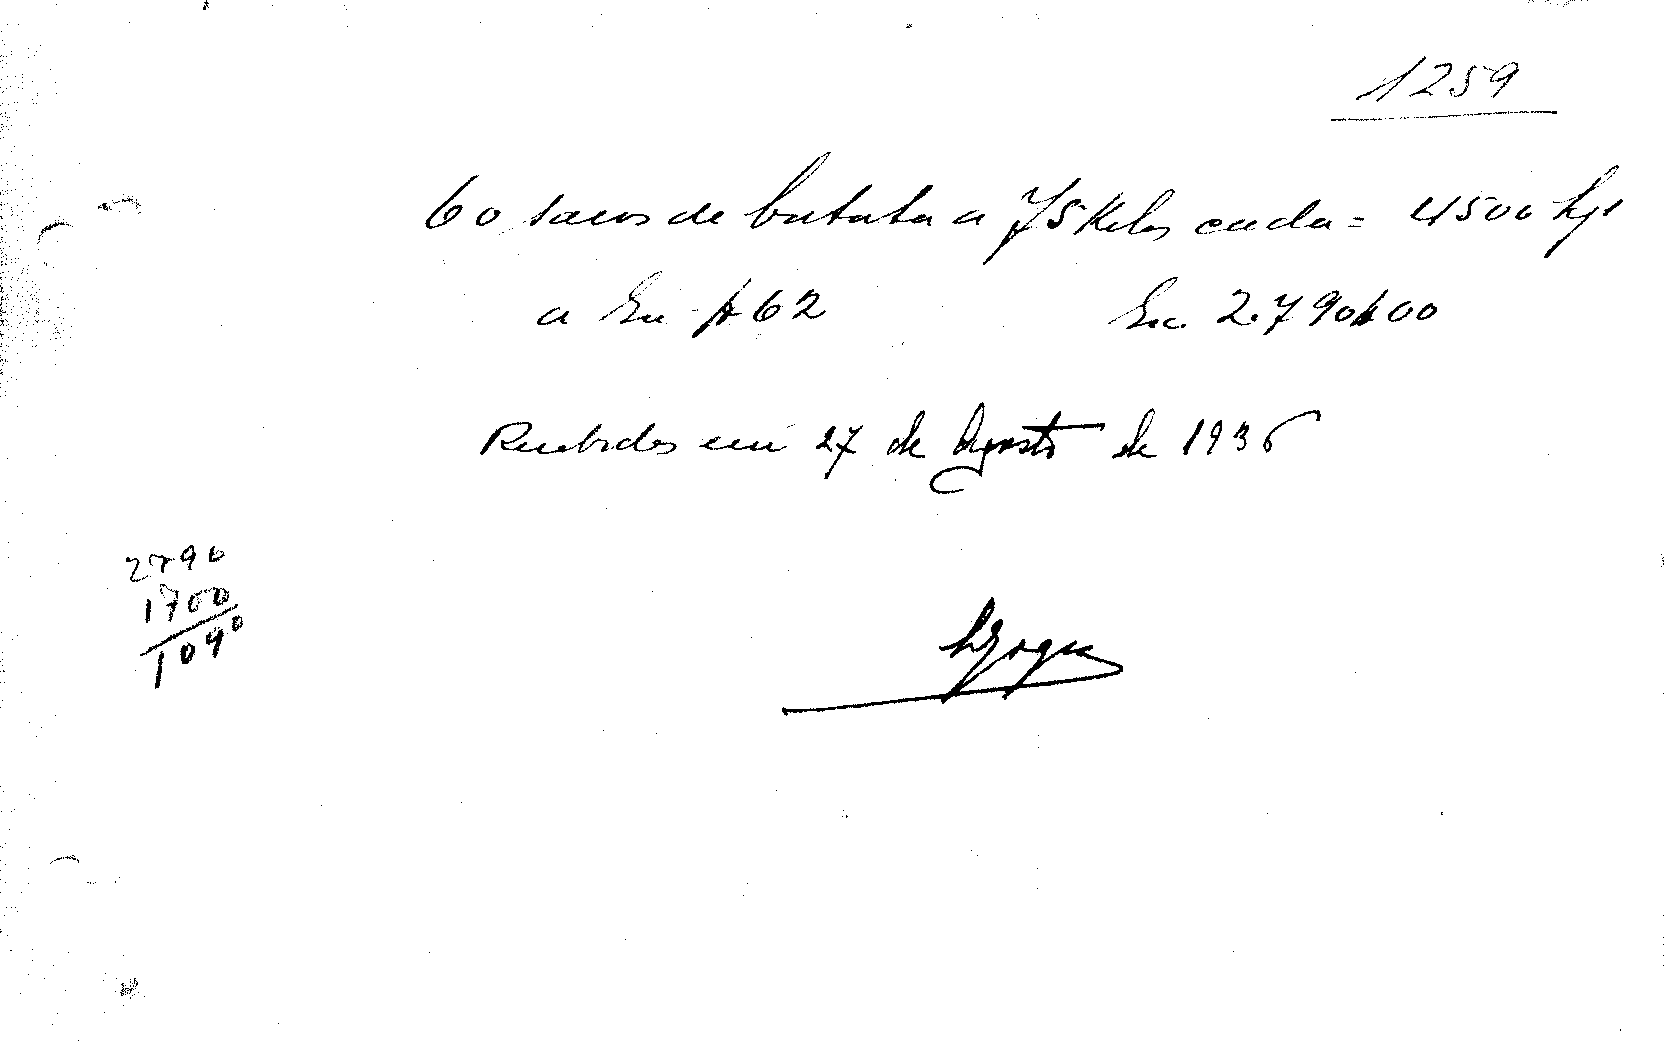 1259
60 sacos de batata a 75 Kilos cada = 4500 kgs
a Esc $62 Esc. 2.790$00
Recebidos em 27 de Agosto de 1936
2790
1700
1090